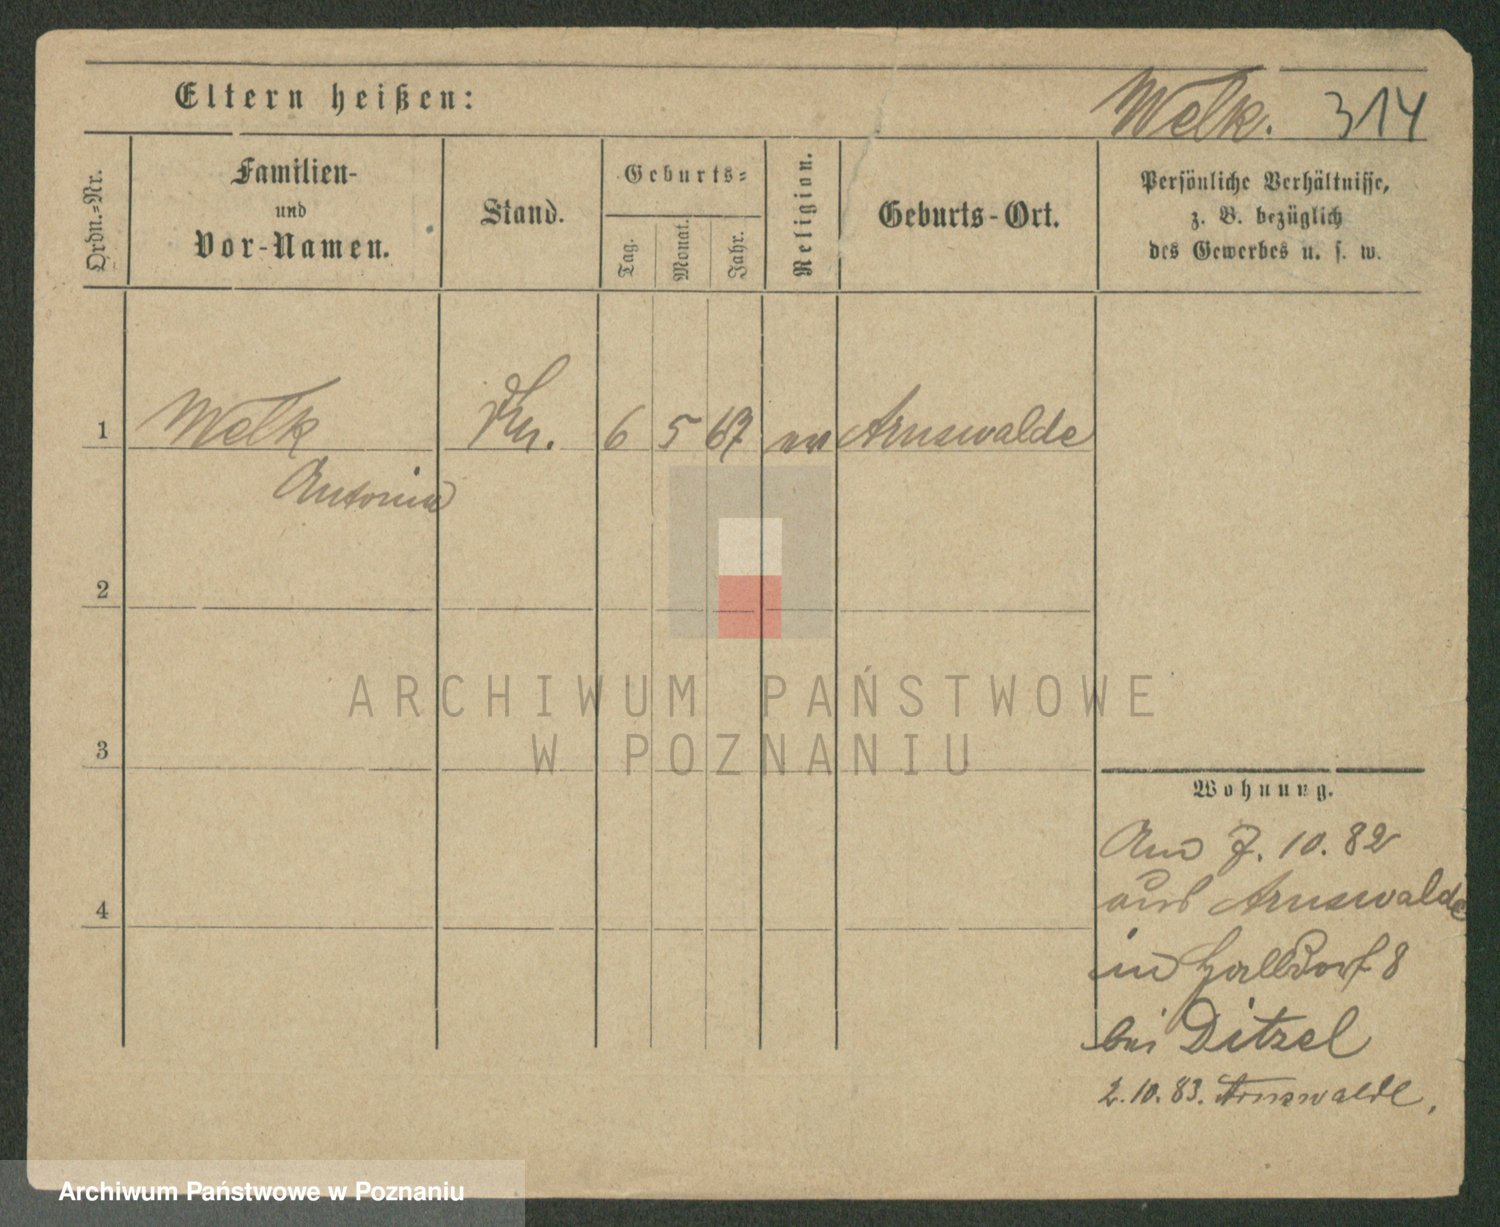 Eltern heißen:
Welk. 314
Ordn.-Nr.
Familien-
und
Vor-Namen.
Stand.
Geburts-
Tag.
Monat.
Jahr.
Religion.
Geburts-Ort.
Persönliche Verhältnisse,
z. B. bezüglich
des Gewerbes u. s. w.
1 Welk 6 5 67 ev Arnswalde
Antonie
2
3
4
Wohnung.
7. 10. 82
aus Arnswalde
in Halldorf 8
bei Ditzel
2. 10. 83. Arnswalde.
ARCHIWUM PAŃSTWOWE
W POZNANIU
Archiwum Państwowe w Poznaniu